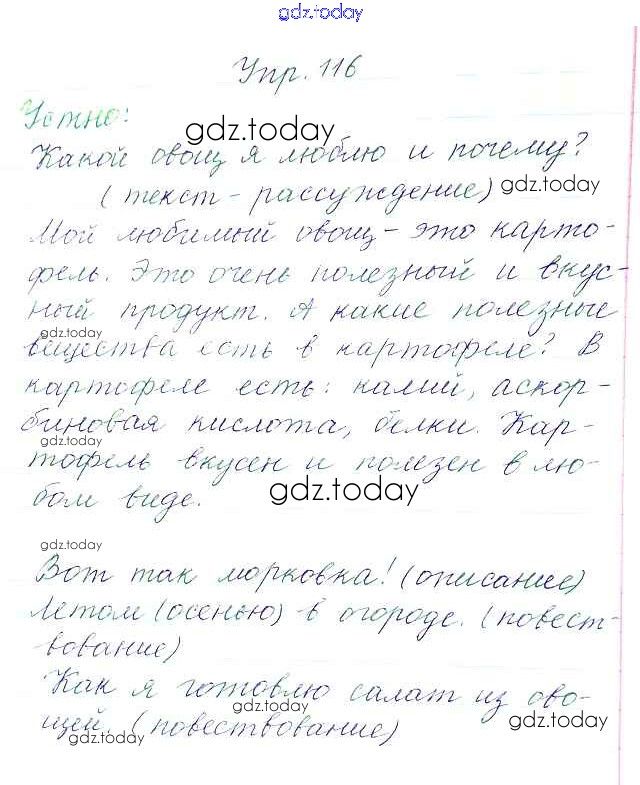 gdz.today
Упр. 116
Устно:
gdz.today
Какой овощ я люблю и почему?
(текст - рассуждение) gdz.today
Мой любимый овощ - это карто-
фель. Это очень полезный и вкус-
ный продукт. А какие полезные
gdz.today
вещества есть в картофеле? В
картофеле есть: калий, аскор-
биновая кислота, белки. Кар-
gdz.today
тофель вкусен и полезен в лю-
бом виде.
gdz.today
gdz.today
Вот так морковка! (описание)
Летом (осенью) в огороде. (повест-
вование)
Как я готовлю салат из ово-
gdz.today
щей. (повествование)
gdz.today
gdz.today